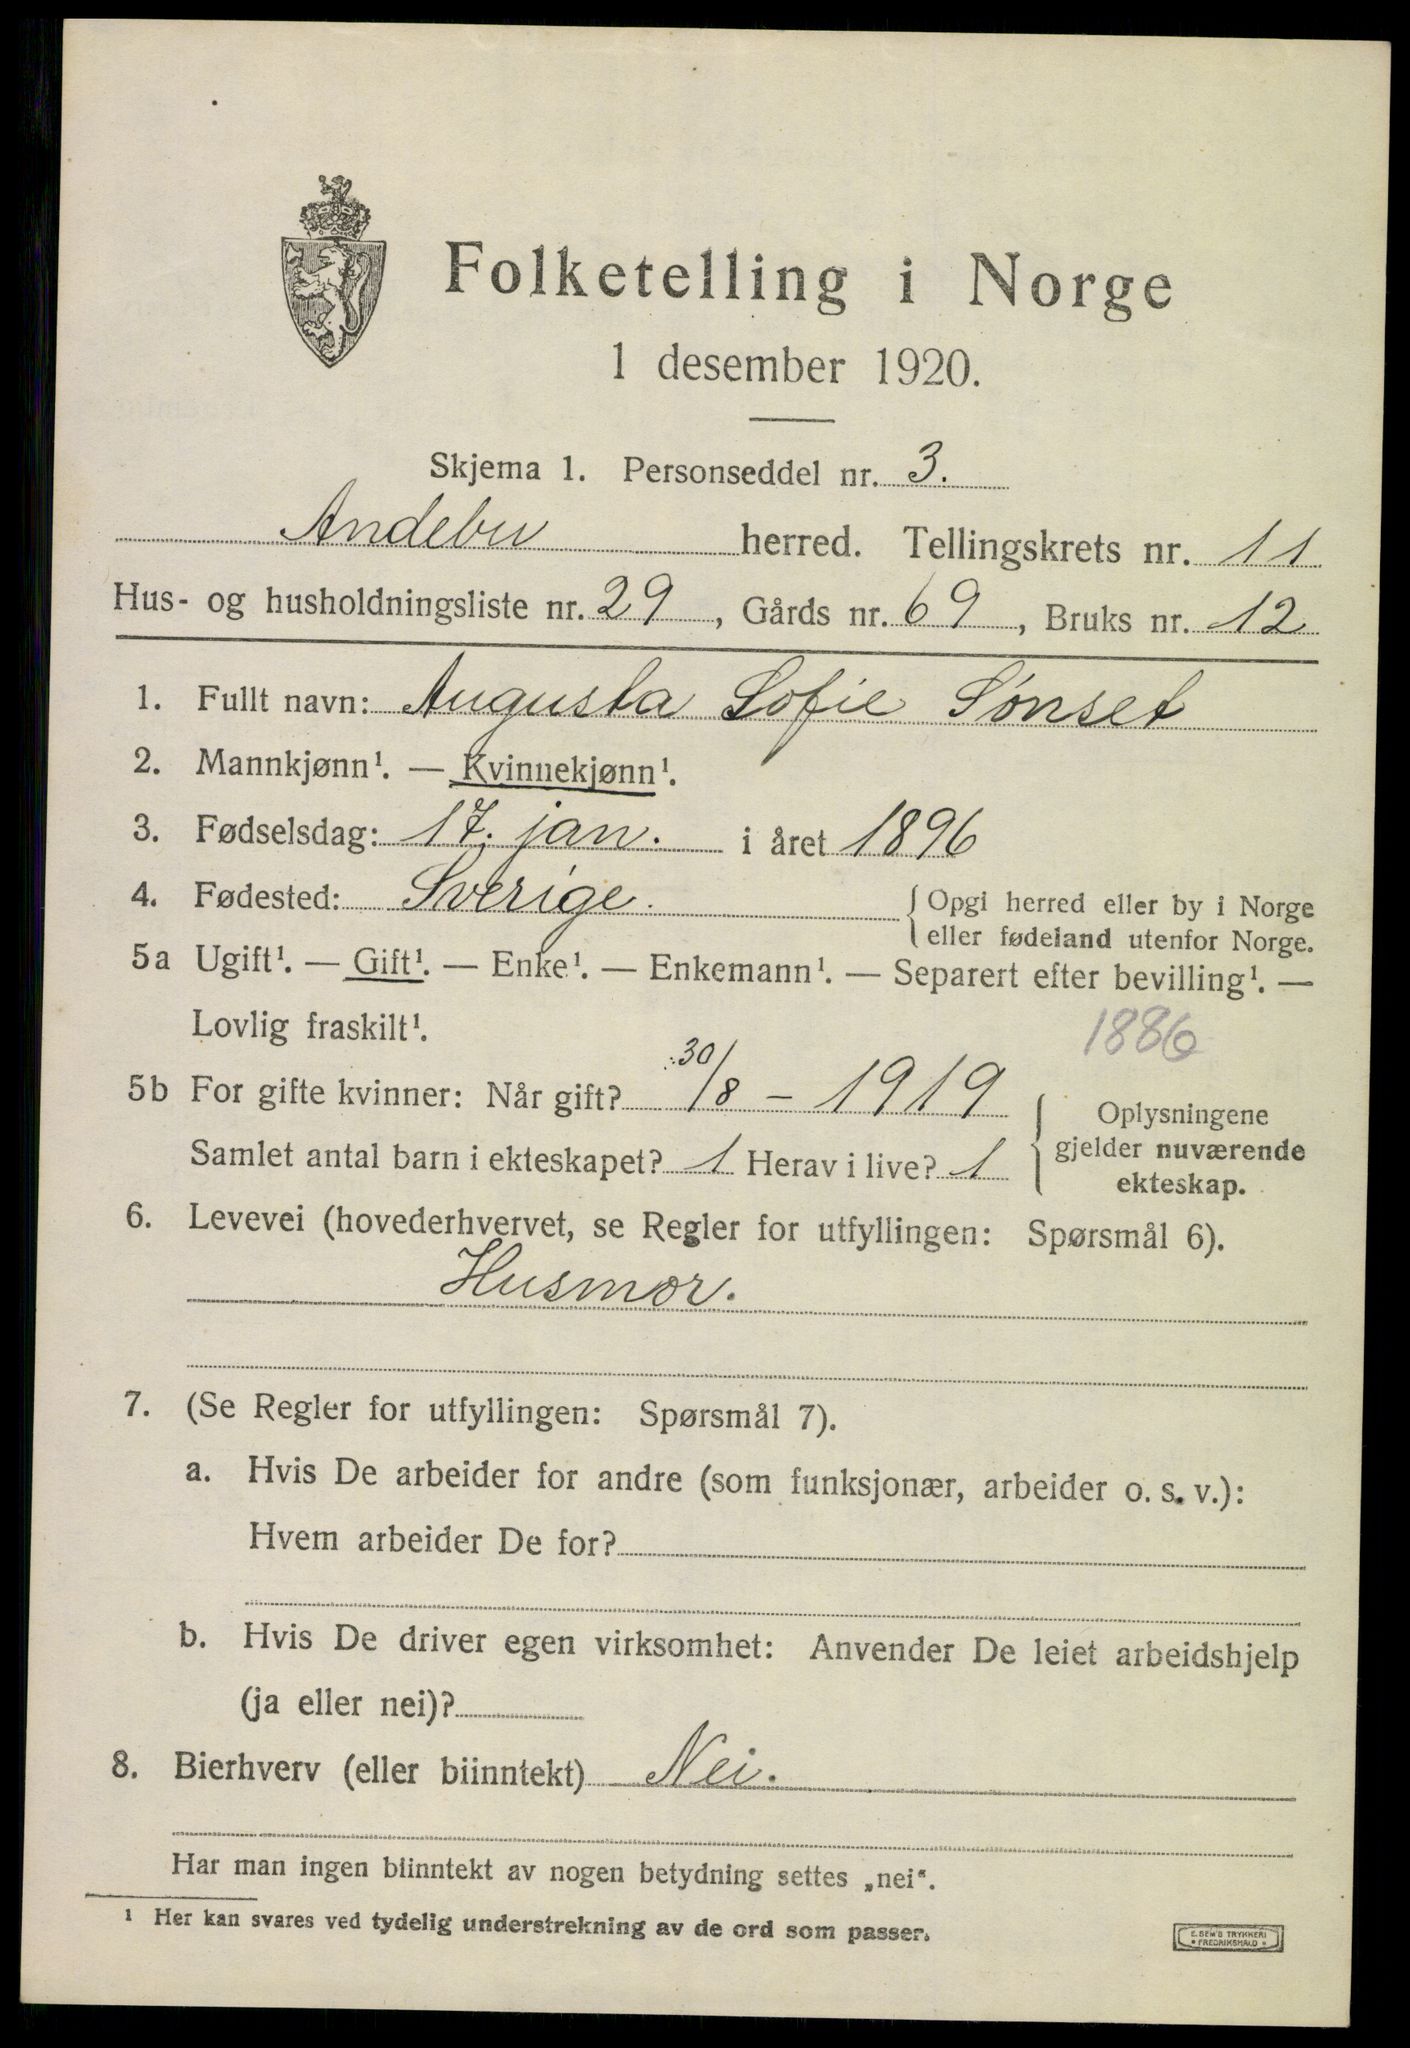 Folketelling i Norge
1 desember 1920.
Skjema 1. Personseddel nr. 3.
Andebu herred. Tellingskrets nr. 11
Hus- og husholdningsliste nr. 29, Gårds nr. 69, Bruks nr. 12
1. Fullt navn: Augusta Sofie Sønset
2. Mannkjønn¹. — Kvinnekjønn¹.
3. Fødselsdag: 17. jan. i året 1896
4. Fødested: Sverige. { Opgi herred eller by i Norge
eller fødeland utenfor Norge.
5a Ugift¹. — Gift¹. — Enke¹. — Enkemann¹. — Separert efter bevilling¹. —
Lovlig fraskilt¹. 1886
5b For gifte kvinner: Når gift? 30/8 – 1919 { Oplysningene
Samlet antal barn i ekteskapet? 1 Herav i live? 1 gjelder nuværende
ekteskap.
6. Levevei (hovederhvervet, se Regler for utfyllingen: Spørsmål 6).
Husmor.
7. (Se Regler for utfyllingen: Spørsmål 7).
a. Hvis De arbeider for andre (som funksjonær, arbeider o. s. v.):
Hvem arbeider De for?
b. Hvis De driver egen virksomhet: Anvender De leiet arbeidshjelp
(ja eller nei)?
8. Bierhverv (eller biinntekt) Nei.
Har man ingen biinntekt av nogen betydning settes „nei“.
¹ Her kan svares ved tydelig understrekning av de ord som passer.
E. SEM'S TRYKKERI
• FREDRIKSHALD •